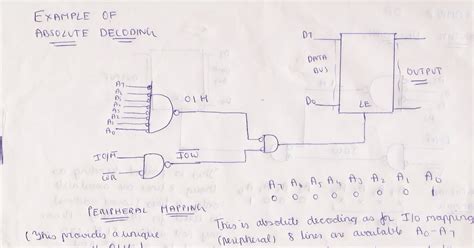 EXAMPLE OF
ABSOLUTE DECODING
D7
DATA
BUS
D0
OUTPUT
LE
A7
A6
A5
A4
A3
A2
A1
A0
01H
IO/M̅
W̅R̅
I̅O̅W̅
A7 A6 A5 A4 A3 A2 A1 A0
0 0 0 0 0 0 0 1
PERIPHERAL MAPPING
(This provides a unique
This is absolute decoding as for I/O mapping
(peripheral) 8 lines are available A0-A7